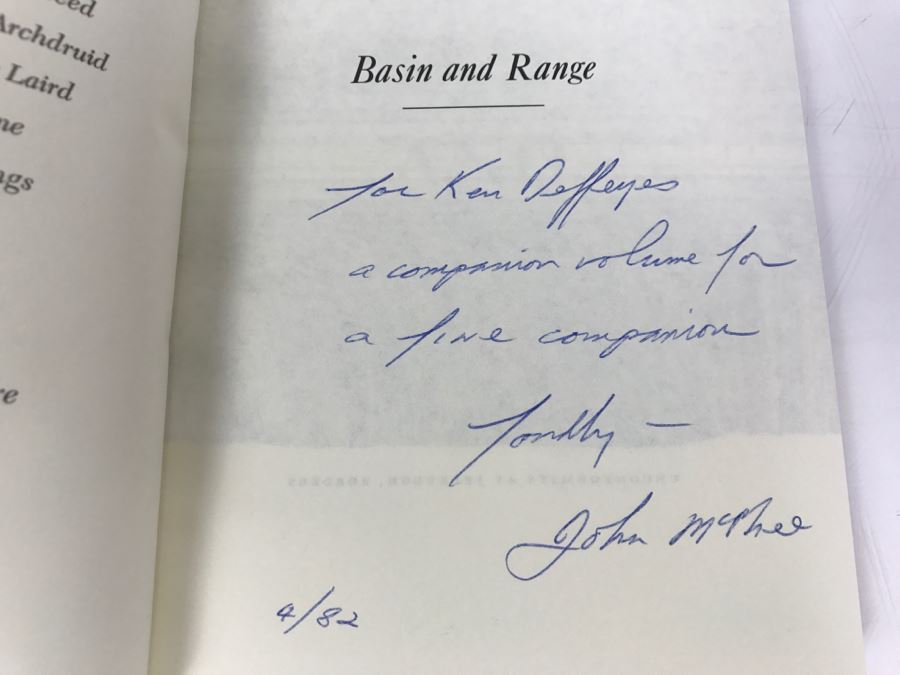 Archdruid
Laird
Basin and Range
for Ken Deffeyes
a companion volume for
a fine companion
Fondly —
John McPhee
4/82